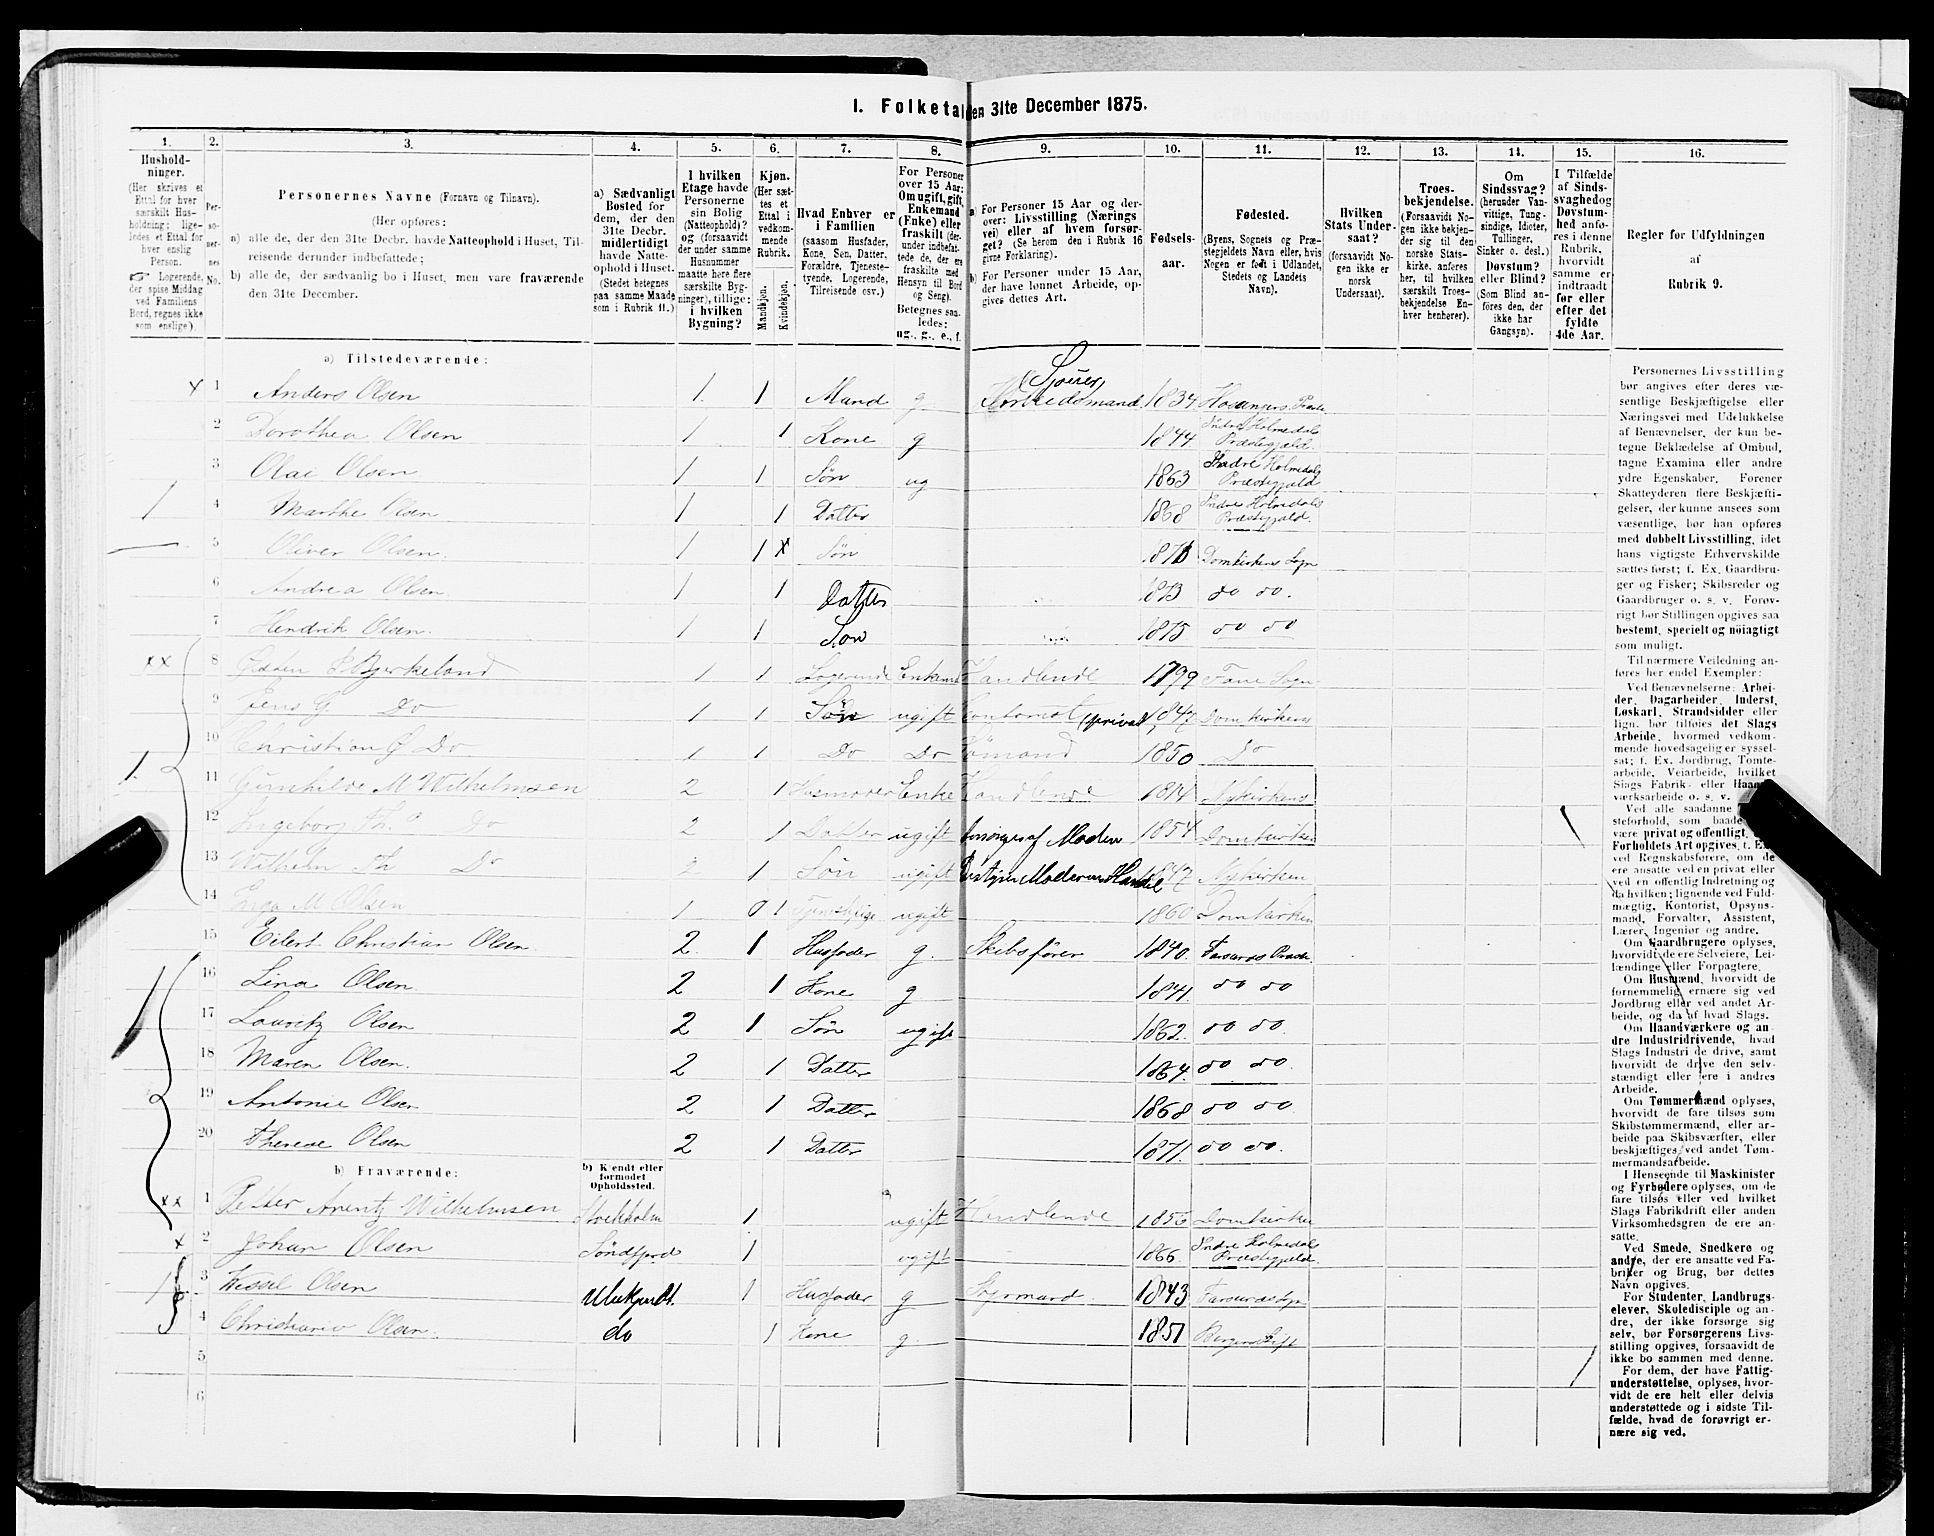 I. Folketal den 31te December 1875.
1. 2. 3. 4. 5. 6. 7. 8. 9. 10. 11. 12. 13. 14. 15. 16.
Hushold-
ninger.
(Her skrives et
Ettal for hver
særskilt Hus-
holdning; lige-
ledes et Ettal for
hver enslig
Person.
☞ Logerende,
der spise Middag
ved Familiens
Bord, regnes ikke
som enslige).
Per-
so-
ner-
nes
No.
Personernes Navne (Fornavn og Tilnavn).
(Her opføres:
a) alle de, der den 31te Decbr. havde Natteophold i Huset, Til-
reisende derunder indbefattede;
b) alle de, der sædvanlig bo i Huset, men vare fraværende
den 31te December.
a) Sædvanligt
Bosted for
dem, der den
31te Decbr.
midlertidigt
havde Natte-
ophold i Huset.
(Stedet betegnes
paa samme Maade
som i Rubrik 11.)
I hvilken
Etage havde
Personerne
sin Bolig
(Natteophold)?
og (forsaavidt
under samme
Husnummer
maatte høre flere
særskilte Byg-
ninger), tillige:
i hvilken
Bygning?
Kjøn.
(Her sæt-
tes et
Ettal i
vedkom-
mende
Rubrik.
Mandkjøn.
Kvindekjøn.
Hvad Enhver er
i Familien
(saasom Husfader,
Kone, Søn, Datter,
Forældre, Tjeneste-
tyende, Logerende,
Tilreisende osv.)
For Personer
over 15 Aar:
Om ugift, gift,
Enkemand
(Enke) eller
fraskilt (der-
under indbefat-
tede de, der ere
fraskilte med
Hensyn til Bord
og Seng).
Betegnes saa-
ledes:
ug., g., e., f.
a) For Personer 15 Aar og der-
over: Livsstilling (Nærings
vei) eller af hvem forsør-
get? (Se herom den i Rubrik 16
givne Forklaring).
b) For Personer under 15 Aar,
der have lønnet Arbeide, op-
gives dettes Art.
Fødsels-
aar.
Fødested.
(Byens, Sognets og Præ-
stegjeldets Navn eller, hvis
Nogen er født i Udlandet,
Stedets og Landets
Navn).
Hvilken
Stats Under-
saat?
(forsaavidt No-
gen ikke er
norsk
Undersaat).
Troes-
bekjendelse.
(Forsaavidt No-
gen ikke bekjen-
der sig til den
norske Stats-
kirke, anføres
her, til hvilken
særskilt Troes-
bekjendelse En-
hver henhører).
Om
Sindssvag?
(herunder Van-
vittige, Tung-
sindige, Idioter,
Tullinger,
Sinker o. desl.)
Døvstum?
eller Blind?
(Som Blind an-
føres den, der
ikke har
Gangsyn).
I Tilfælde
af Sinds-
svaghed og
Døvstum-
hed anfø-
res i denne
Rubrik,
hvorvidt
samme er
indtraadt
før eller
efter det
fyldte
4de Aar.
Regler for Udfyldningen
af
Rubrik 9.
a) Tilstedeværende:
Sjouer,
1 Anders Olsen 1. 1 Mand g Arbeidsmand 1834 Hosangers Præst
2 Dorothea Olsen 1 1 Kone g 1844 Indre Holmedals Præstegjæld.
3 Olai Olsen 1 1 Søn ug 1863 Indre Holmedals Præstegjæld
4 Marthe Olsen 1 1 Datter 1868 Indre Holmedals Præstegjæld.
5 Oliver Olsen. 1 1 x Søn Domkirkens Sogn
6 Andrea Olsen. 1 1 Datter 1873 do do.
7 Hendrik Olsen. 1 1 Søn 1875 do do
8 Bjerkeland 1 1 Logerende Enkem Handlende 1799 Fane Sogn
9 Jens G Do 1 1 Søn ugift Contorist (privat) 1847 Domkirkens
10 Christian Ø Do 1 1 Do Do Sømand 1850 Do
11 Gunhilde M Wilhelmsen 2 1 Husmoder Enke Handlende 1814 Nykirkens
12 Ingeborg Do 2 1 Datter ugift forsørges af Moden 1854 Domkirken
13 Wilhelm Th Do 2 1 Søn ugift Bestyrer Moderens Handel 1847 Nykirken
14 Inga M Olsen 1 0 1 ugift 1860 Domkirken
15 Eilert Christian Olsen. 2. 1 Husfader g. Skibsfører 1840. Farsunds Præst.
16 Lina Olsen. 2 1 Kone g 1841. do do
17 Lauritz Olsen 2 1 Søn ugift 1862. do do.
18 Maren Olsen. 2 1 Datter 1864. do do.
19 Antonie Olsen 2 1 Datter 1868 do do.
20 Therese Olsen 2 1 Datter 1871. do do.
b) Fraværende:
b) Kjendt eller
formodet
Opholdssted.
1 Petter Arentz Wilhelmsen Stockholm 1 ugift Handlende Domkirken
2 Johan Olsen Søndfjord 1 ugift 1866. Indre Holmedals Præstegjæld.
3 Wessel Olsen Ubekjendt. 1 Husfader g Styrmand. 1843 Farsunds
4 Christiane Olsen. do 1 Kone g 1851 Bergens Stift
5
6
Personernes Livsstilling
bør angives efter deres væ-
sentlige Beskjæftigelse eller
Næringsvei med Udelukkelse
af Benævnelser, der kun be-
tegne Beklædelse af Ombud,
tagne Examina eller andre
ydre Egenskaber. Forener
Skatteyderen flere Beskjæfti-
gelser, der kunne ansees som
væsentlige, bør han opføres
med dobbelt Livsstilling, idet
hans vigtigste Erhvervskilde
sættes først; f. Ex. Gaardbru-
ger og Fisker; Skibsreder og
Gaardbruger o. s. v. Forøv-
rigt bør Stillingen opgives saa
bestemt, specielt og nøiagtigt
som muligt.
Til nærmere Veiledning an-
føres her endel Exempler:
Ved Benævnelserne: Arbei-
der, Dagarbeider, Inderst,
Løskarl, Strandsidder eller
lign. bør tilføies det Slags
Arbeide, hvormed vedkom-
mende hovedsagelig er syssel-
sat; f. Ex. Jordbrug, Tomte-
arbeide, Veiarbeide, hvilket
Slags Fabrik- eller Haand-
værksarbeide o. s. v.
Ved alle saadanne
steforhold, som baade
være privat og offentligt,
Forholdets Art opgives. f. Ex.
ved Regnskabsførere, om de
ere ansatte ved en privat eller
ved en offentlig Indretning og
da hvilken; lignende ved Fuld-
mægtig, Kontorist, Opsyns-
mand, Forvalter, Assistent,
Lærer, Ingeniør og andre.
Om Gaardbrugere oplyses,
hvorvidt de ere Selveiere, Lei-
lændinge eller Forpagtere.
Om Husmænd, hvorvidt de
fornemmelig ernære sig ved
Jordbrug eller ved andet Ar-
beide, og da af hvad Slags.
Om Haandværkere og an-
dre Industridrivende, hvad
Slags Industri de drive, samt
hvorvidt de drive den selv-
stændigt eller ere i andres
Arbeide.
Om Tømmermænd oplyses,
hvorvidt de fare tilsøs som
Skibstømmermænd, eller ar-
beide paa Skibsværfter, eller
beskjæftiges ved andet Tøm-
mermandsarbeide.
I Henseende til Maskinister
og Fyrbødere oplyses, om de
fare tilsøs eller ved hvilket
Slags Fabrikdrift eller anden
Virksomhedsgren de ere an-
satte.
Ved Smede, Snedkere og
andre, der ere ansatte ved Fa-
briker og Brug, bør dettes
Navn opgives.
For Studenter, Landbrugs-
elever, Skoledisciple og an-
dre, der ikke forsørge sig
selv, bør Forsørgerens Livs-
stilling opgives, forsaavidt de
ikke bo sammen med denne.
For dem, der have Fattig-
understøttelse, oplyses, hvor-
vidt de ere helt eller delvis
understøttede og i sidste Til-
fælde, hvad de forøvrigt er-
nære sig ved.